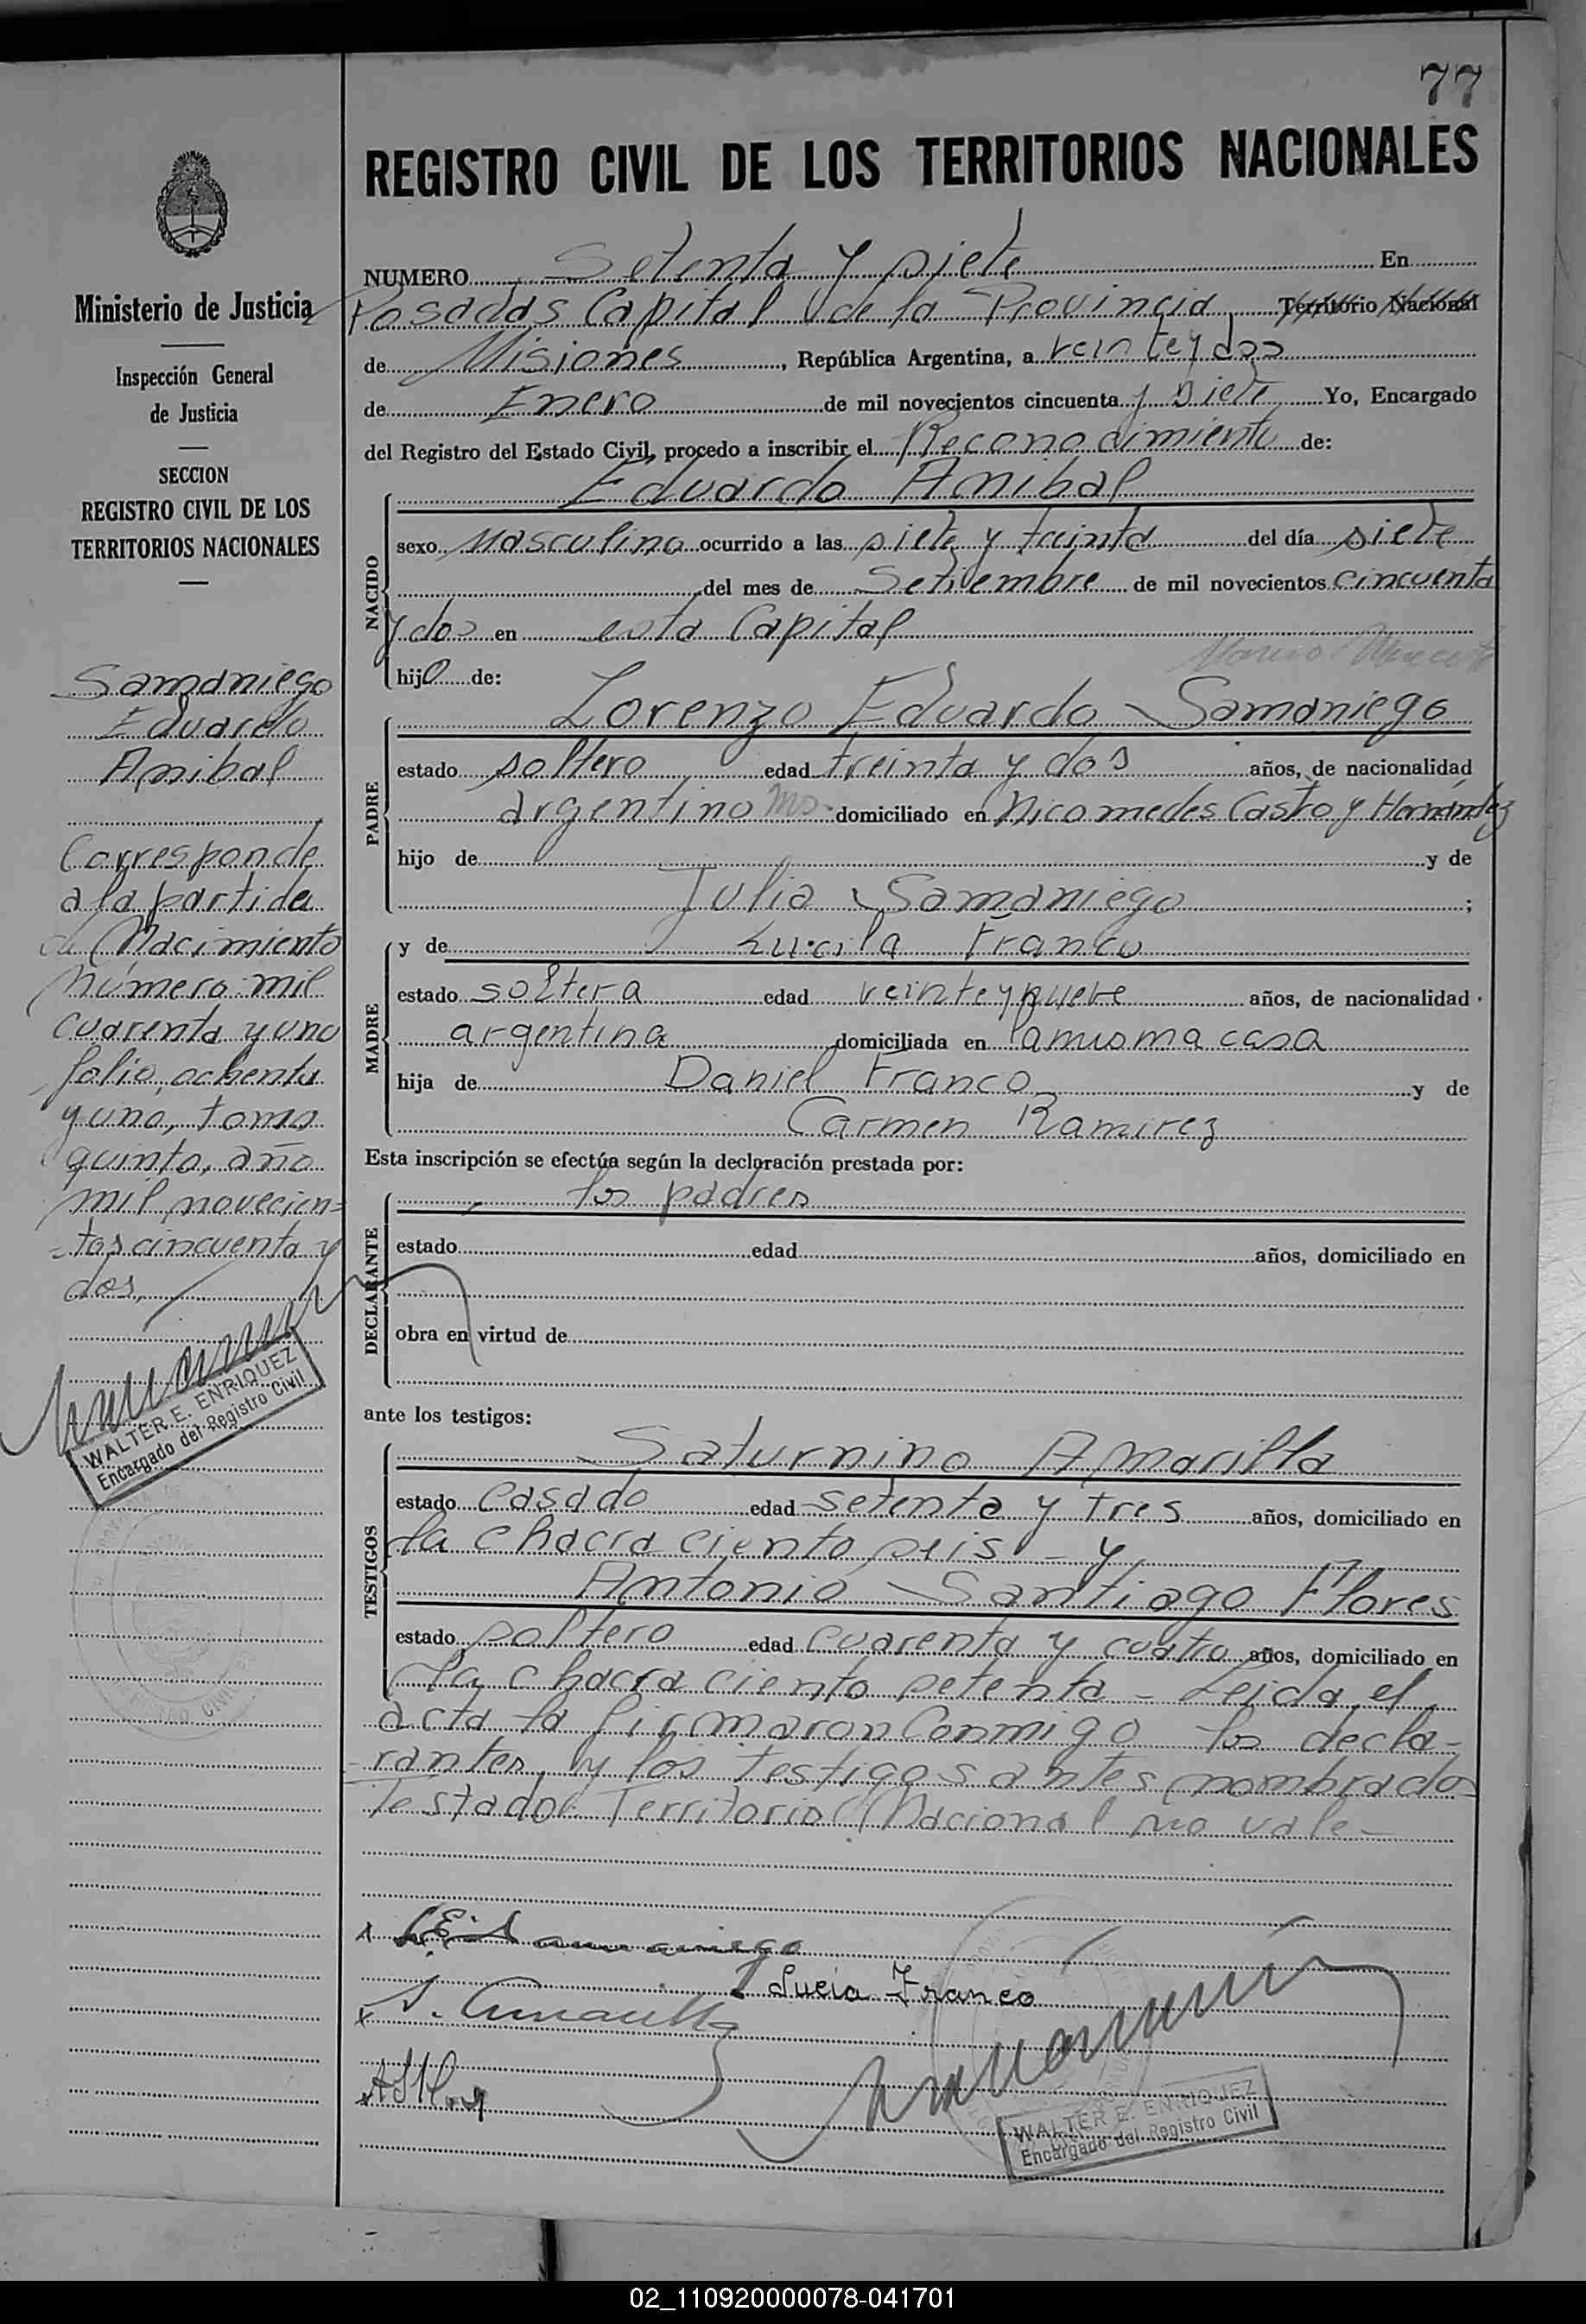 77
REGISTRO CIVIL DE LOS TERRITORIOS NACIONALES
Ministerio de Justicia
Inspección General
de Justicia
SECCION
REGISTRO CIVIL DE LOS
TERRITORIOS NACIONALES
Samaniego
Eduardo
Anibal
Corresponde
a la partida
de Nacimiento
Número mil
cuarenta y uno
folio, ochenta
y uno, tomo
quinto, año
mil novecien=
=tos cincuenta y
dos,
WALTER E. ENRIQUEZ
Encargado del Registro Civil
NUMERO Setenta y siete En
Posadas Capital de la Provincia Territorio Nacional
de Misiones, República Argentina, a veinte y dos
de Enero de mil novecientos cincuenta y siete Yo, Encargado
del Registro del Estado Civil, procedo a inscribir el Reconocimiento de:
NACIDO
Eduardo Anibal
sexo Masculino ocurrido a las siete y treinta del día siete
del mes de Setiembre de mil novecientos cincuenta
y dos en esta Capital
hijo de:
PADRE
Lorenzo Eduardo Samaniego
estado soltero edad treinta y dos años, de nacionalidad
argentino domiciliado en Nicomedes Castro y Hernández
hijo de y de
Julia Samaniego;
MADRE
y de Lucila Franco
estado soltera edad veinte y nueve años, de nacionalidad
argentina domiciliada en la misma casa
hija de Daniel Franco y de
Carmen Ramirez
Esta inscripción se efectúa según la declaración prestada por:
DECLARANTE
los padres
estado edad años, domiciliado en
obra en virtud de
ante los testigos:
TESTIGOS
Saturnino Amarilla
estado Casado edad setenta y tres años, domiciliado en
la chacra ciento seis - y
Antonio Santiago Flores
estado soltero edad cuarenta y cuatro años, domiciliado en
la chacra ciento setenta - Leida el
acta la firmaron conmigo los decla-
rantes y los testigos antes nombrados
Testado: Territorio Nacional no vale -
L.E. Samaniego
Lucia Franco
S. Amarilla
WALTER E. ENRIQUEZ
Encargado del Registro Civil
02_110920000078-041701